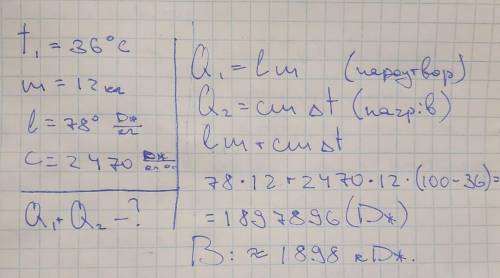 t₁ = 36°C
m = 12 кг
l = 78° Дж/кг
c = 2470 Дж/кг °C
Q₁ + Q₂ - ?
Q₁ = lm (пароутвор)
Q₂ = cmΔt (нагрів)
lm + cmΔt
78·12 + 2470·12·(100-36) =
= 1897896 (Дж)
В: ≈ 1898 кДж.